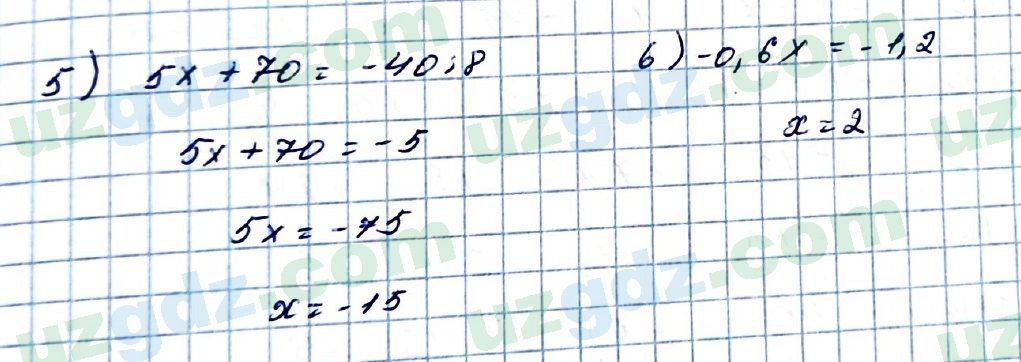 5) 5x + 70 = -40 : 8
5x + 70 = -5
5x = -75
x = -15
6) -0,6x = -1,2
x = 2
uzgdz.com
uzgdz.com
uzgdz.com
uzgdz.com